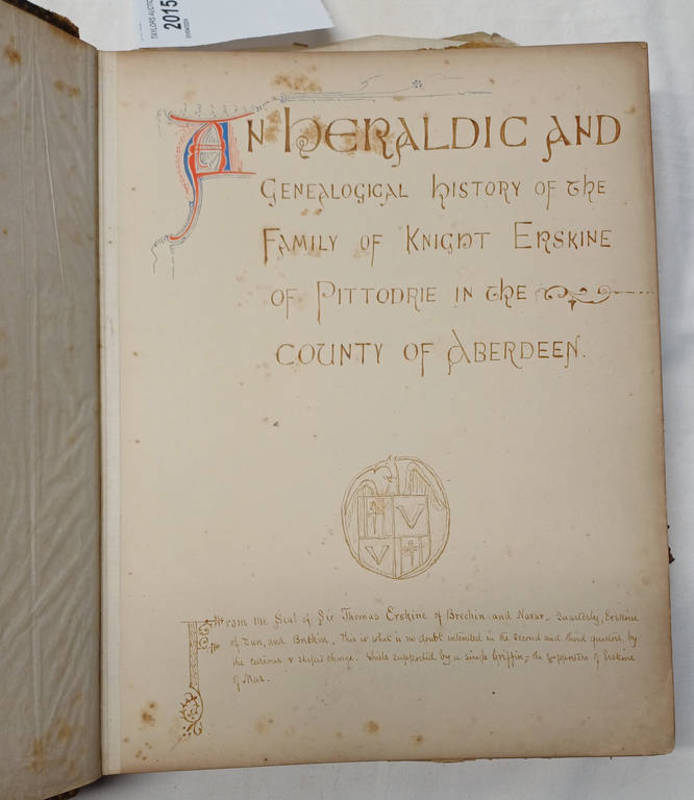 TAYLORS AUCTIO
2015
An Heraldic and
Genealogical History of the
Family of Knight Erskine
of Pittodrie in the
County of Aberdeen.
From the Seal of Sir Thomas Erskine of Brechin and Navar. Quarterly, Erskine
of Dun, and Brechin, This is what is no doubt intended in the second and third quarters, by
the curious & shaped charge. Shield supported by a single Griffin, the supporters of Erskine
of Mar.